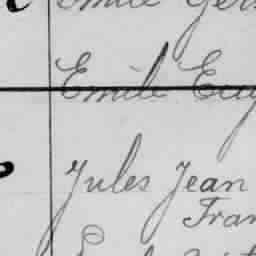 Emile
Emile Eug
Jules Jean
Fran